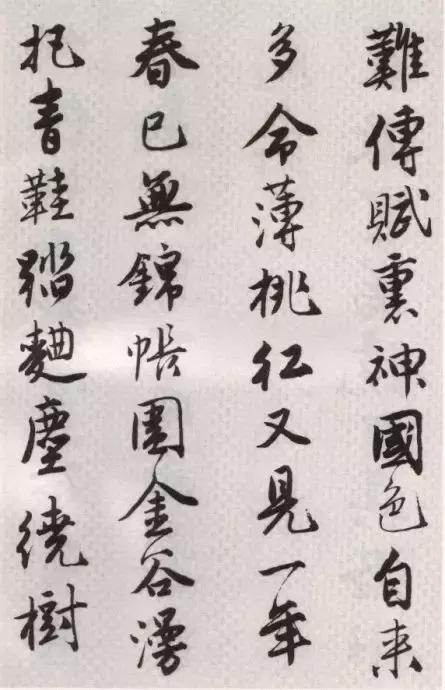 難傳賦裏神國色自来
多命薄桃紅又見一年
春已無錦帳圍金谷漫
把青鞋踏麯塵繞樹